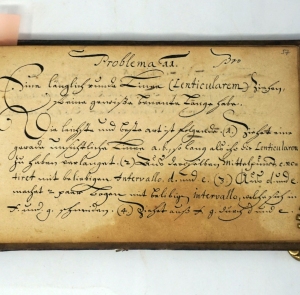 Problema 22.
Eine länglich runde Linea (Lenticularem) Ziehen,
so eine gewisse benante Länge habe.
Die leichste und beste Art ist folgende. (1) Ziehet eine
gerade unsichtliche Linea a. b. so lang als ihr die Lenticularem
Zu haben verlanget. (2) Aus derselben Mittelpunct c. rec
tiret mit beliebigen Intervallo. d. und e. (3) Aus d. und e.
machet 2 paar Bogen mit belibigen Intervallo, welche sich in
f. und g. schneiden. (4) Ziehet auß f. g. durch d. und e.